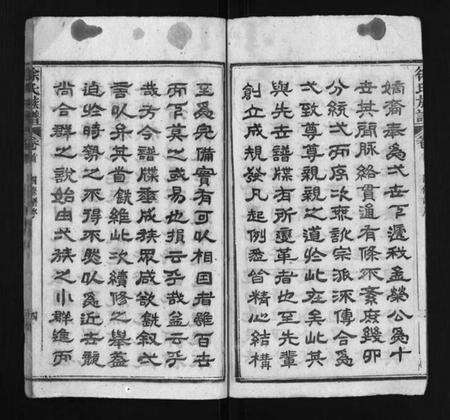 嫡裔奉為弌世下遞秋孟懿公為十
世其間脈絡貫通有條不紊庶幾卯
分統弌而序次聯訛宗派深傳合為
弌致尊尊親親之道於此在矣此其
與先世譜牒有所變革者也至先輩
創立成規發凡起例悉皆精心結構
至為完備實有可以相因者雖百世
而下莫之或易也損云乎哉益云乎
哉方今譜牒垂成族眾咸欲銑敘弌
言以弁其首銑維此次續修之舉蓋
迫於時勢之不得不然以為近世競
尚合群之說始由弌族之小群進而
徐氏族譜
徐氏族譜 卷首